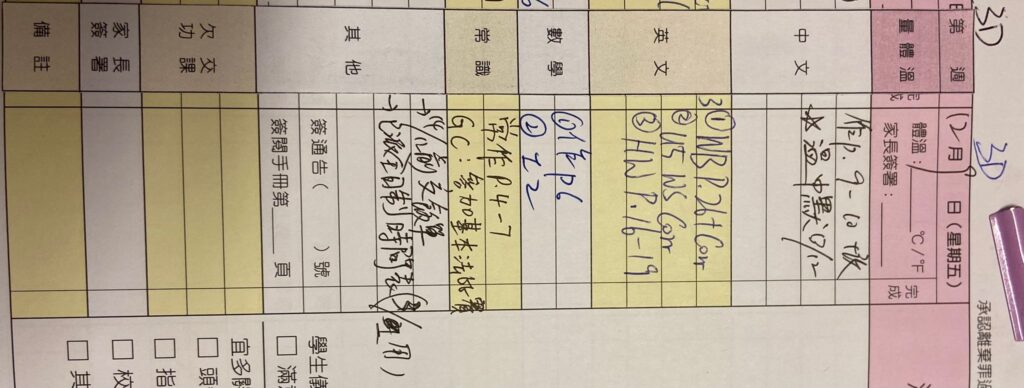 3D
3D
第 週 (12月9日(星期五)
量體溫
體溫:____°C/°F
家長簽署:____
完成
完成
中文
作p.9-10改
溫中默(0/12
英文
3① WB P.26+Corr
② U5 WS Corr
③ HW P.16-19
數學
① 作p6
② 工2
常識
常作P.4-7
GC:參加基本法比賽
其他
簽通告( )號
簽閱手冊第____頁
欠交功課
家長簽署
備註
承認離棄罪過
學生儀
□ 滿
宜多關
□ 頭
□ 指
□ 校
□ 其